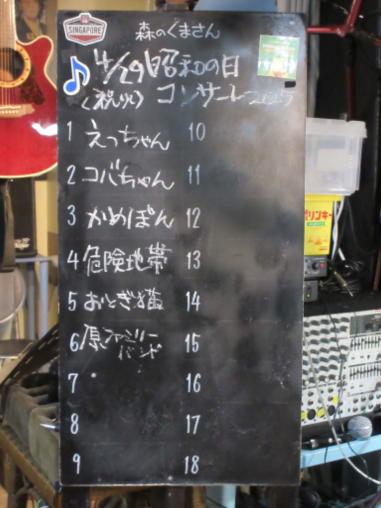 SINGAPORE
森のくまさん
4/29 昭和の日
(祝火) コンサート2025
1 えっちゃん 10
2 コバちゃん 11
3 かめぽん 12
4 危険地帯 13
5 おとぎ猫 14
6 原ファミリーバンド 15
7 16
8 17
9 18
リンキー